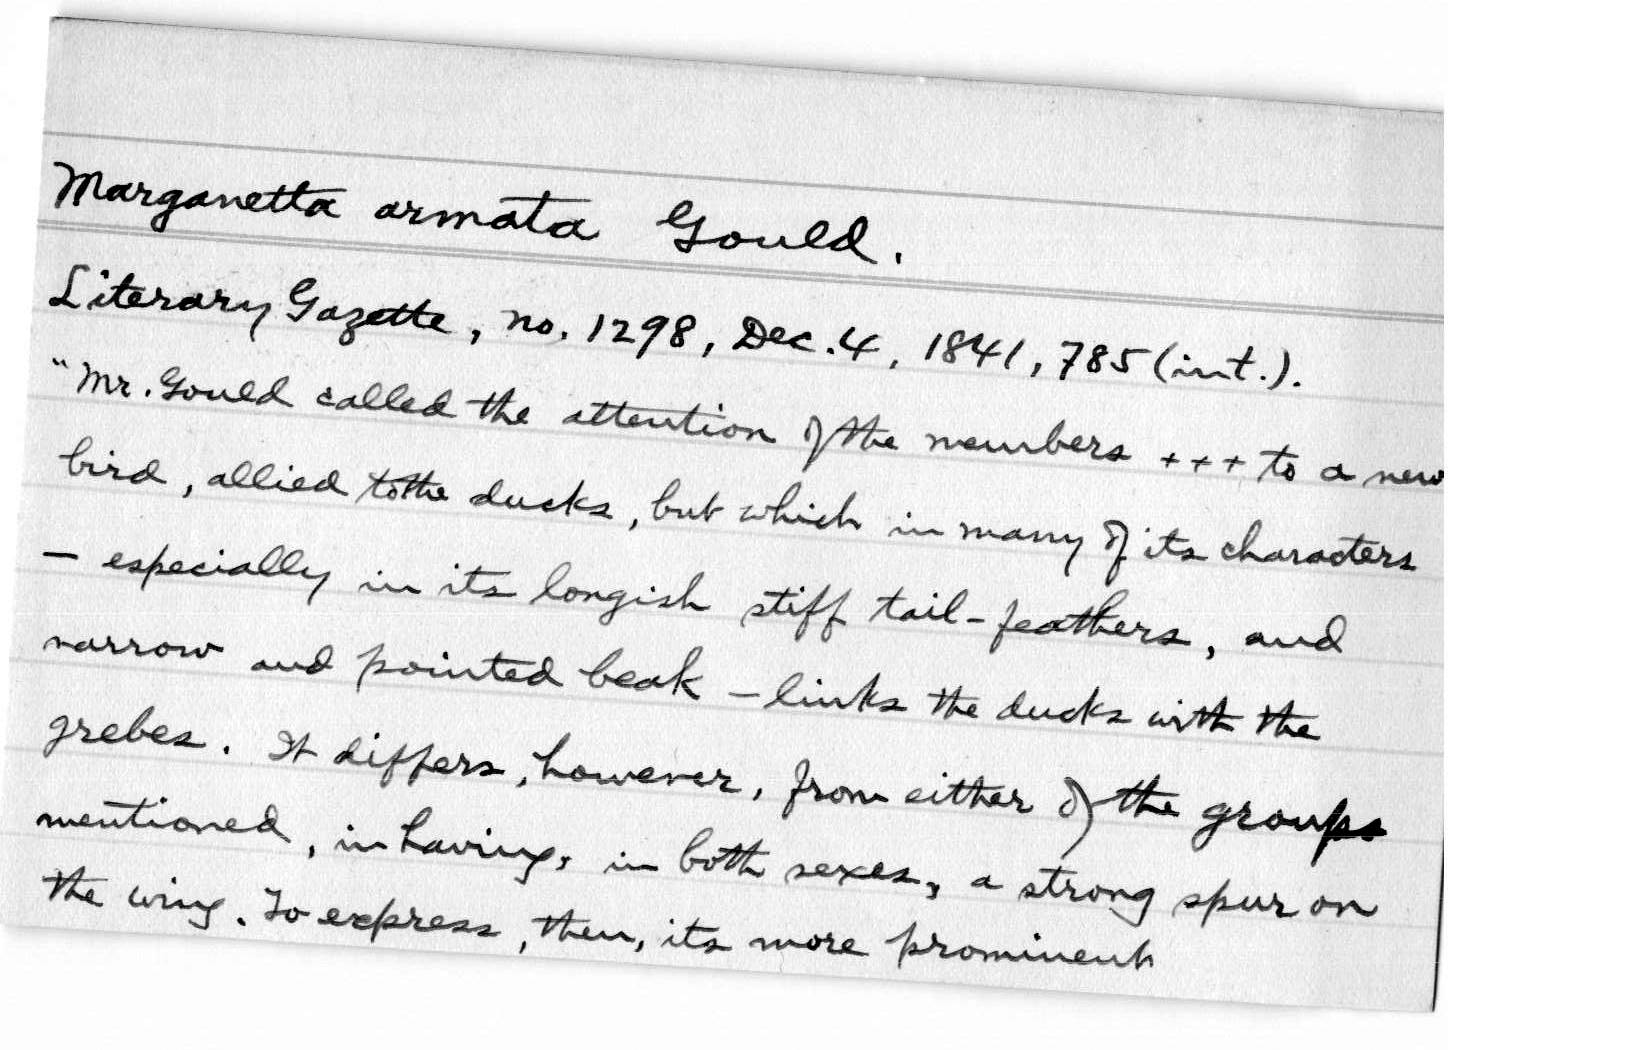 Marganetta armata Gould.
Literary Gazette, no. 1298, Dec. 4, 1841, 785 (int.).
"Mr. Gould called the attention of the members +++ to a new
bird, allied to the ducks, but which in many of its characters
— especially in its longish stiff tail-feathers, and
narrow and pointed beak — links the ducks with the
grebes. It differs, however, from either of the groups
mentioned, in having, in both sexes, a strong spur on
the wing. To express, then, its more prominent